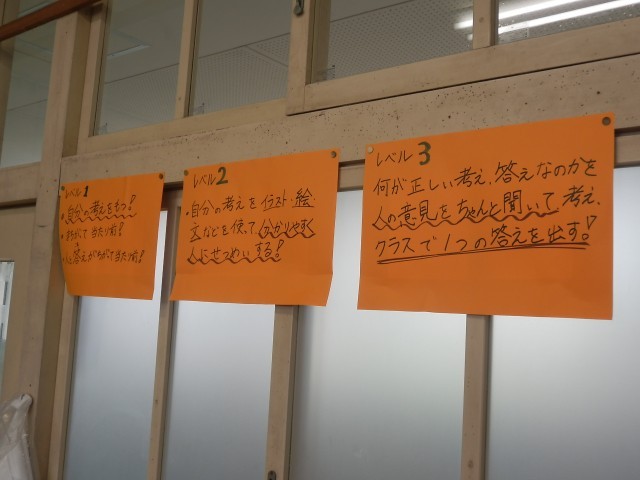 レベル1
・自分の考えをもつ!
・まちがて当たり前!
・人と答えがちがて当たり前!
レベル2
・自分の考えをイラスト・絵・
文などを使って、分かりやすく
人にせつめいする!
レベル3
何が正しい考え、答えなのかを
人の意見をちゃんと聞いて考え、
クラスで1つの答えを出す!